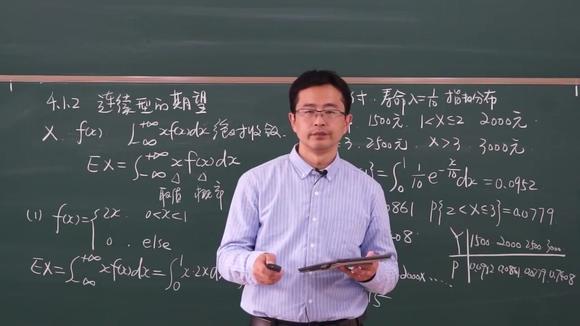 4.1.2 连续型的期望
X f(x) ∫_{-∞}^{+∞} xf(x)dx 绝对收敛
EX = ∫_{-∞}^{+∞} x f(x) dx
取值 概率
(1) f(x) = { 2x. 0<x<1
0. else
EX = ∫_{-∞}^{+∞} xf(x)dx = ∫_0^1 x·2x d
寿命 λ=1/10 指数分布
1500元 1<X≤2 2000元
3. 2500元. X>3. 3000元.
} = ∫_0^1 1/10 e^{-x/10} dx = 0.0952
0861 P{2<X≤3}=0.0779
08
Y 1500 2000 2500 3000
P 0.0952 0.0861 0.0779 0.7408
000x.....
15